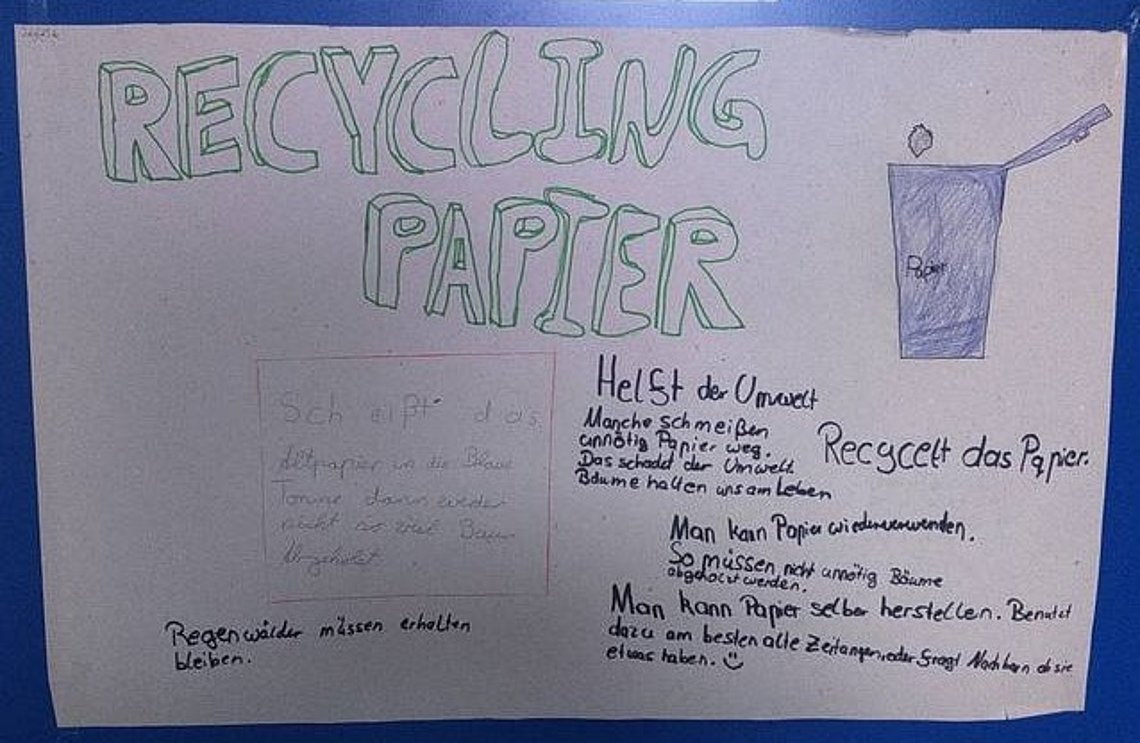 RECYCLING
PAPIER
Papier
Sch eißt das
Altpapier in die Blaue
Tonne dann werden
nicht so viel Baum
Abgeholzt
Helft der Umwelt
Manche schmeißen
unnötig Papier weg.
Das schadet der Umwelt.
Bäume halten uns am Leben
Recycelt das Papier.
Man kann Papier wiederverwenden.
So müssen nicht unnötig Bäume
abgeholzt werden.
Man kann Papier selber herstellen. Benutzt
dazu am besten alte Zeitungen, oder fragt Nachbarn ob sie
etwas haben.
Regenwälder müssen erhalten
bleiben.